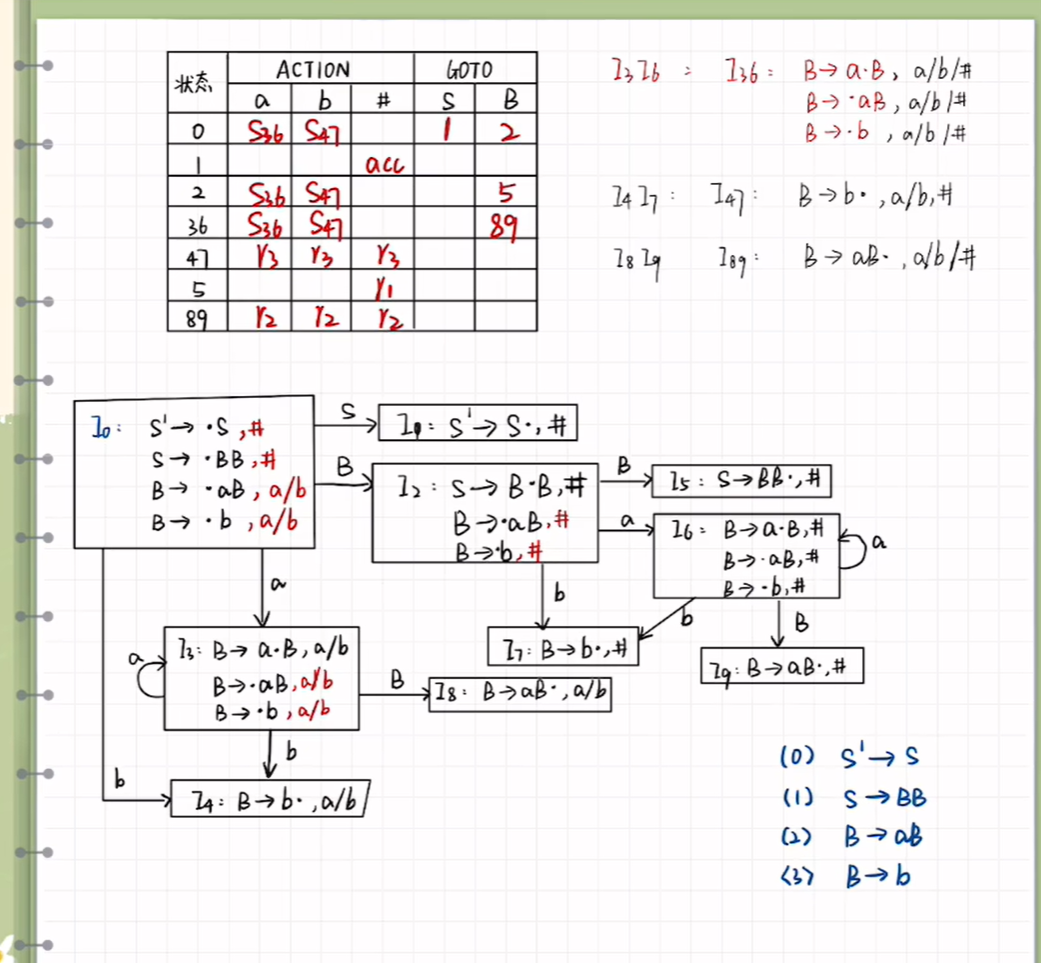 状态 ACTION GOTO
a b # S B
0 S36 S47 1 2
1 acc
2 S36 S47 5
36 S36 S47 89
47 r3 r3 r3
5 r1
89 r2 r2 r2
I3 I6 : I36: B→a·B, a/b/#
B→·aB, a/b/#
B→·b, a/b/#
I4 I7: I47: B→b·, a/b,#
I8 I9 I89: B→aB·, a/b/#
I0: S'→·S,#
S→·BB,#
B→·aB, a/b
B→·b, a/b
S
I1: S'→S·,#
B
I2: S→B·B,#
B→·aB,#
B→·b,#
B
I5: S→BB·,#
a
I6: B→a·B,#
B→·aB,#
B→·b,#
a
a
b
b
B
I7: B→b·,#
I9: B→aB·,#
a
I3: B→a·B, a/b
B→·aB, a/b
B→·b, a/b
B
I8: B→aB·, a/b
b
b
I4: B→b·, a/b
(0) S'→S
(1) S→BB
(2) B→aB
(3) B→b